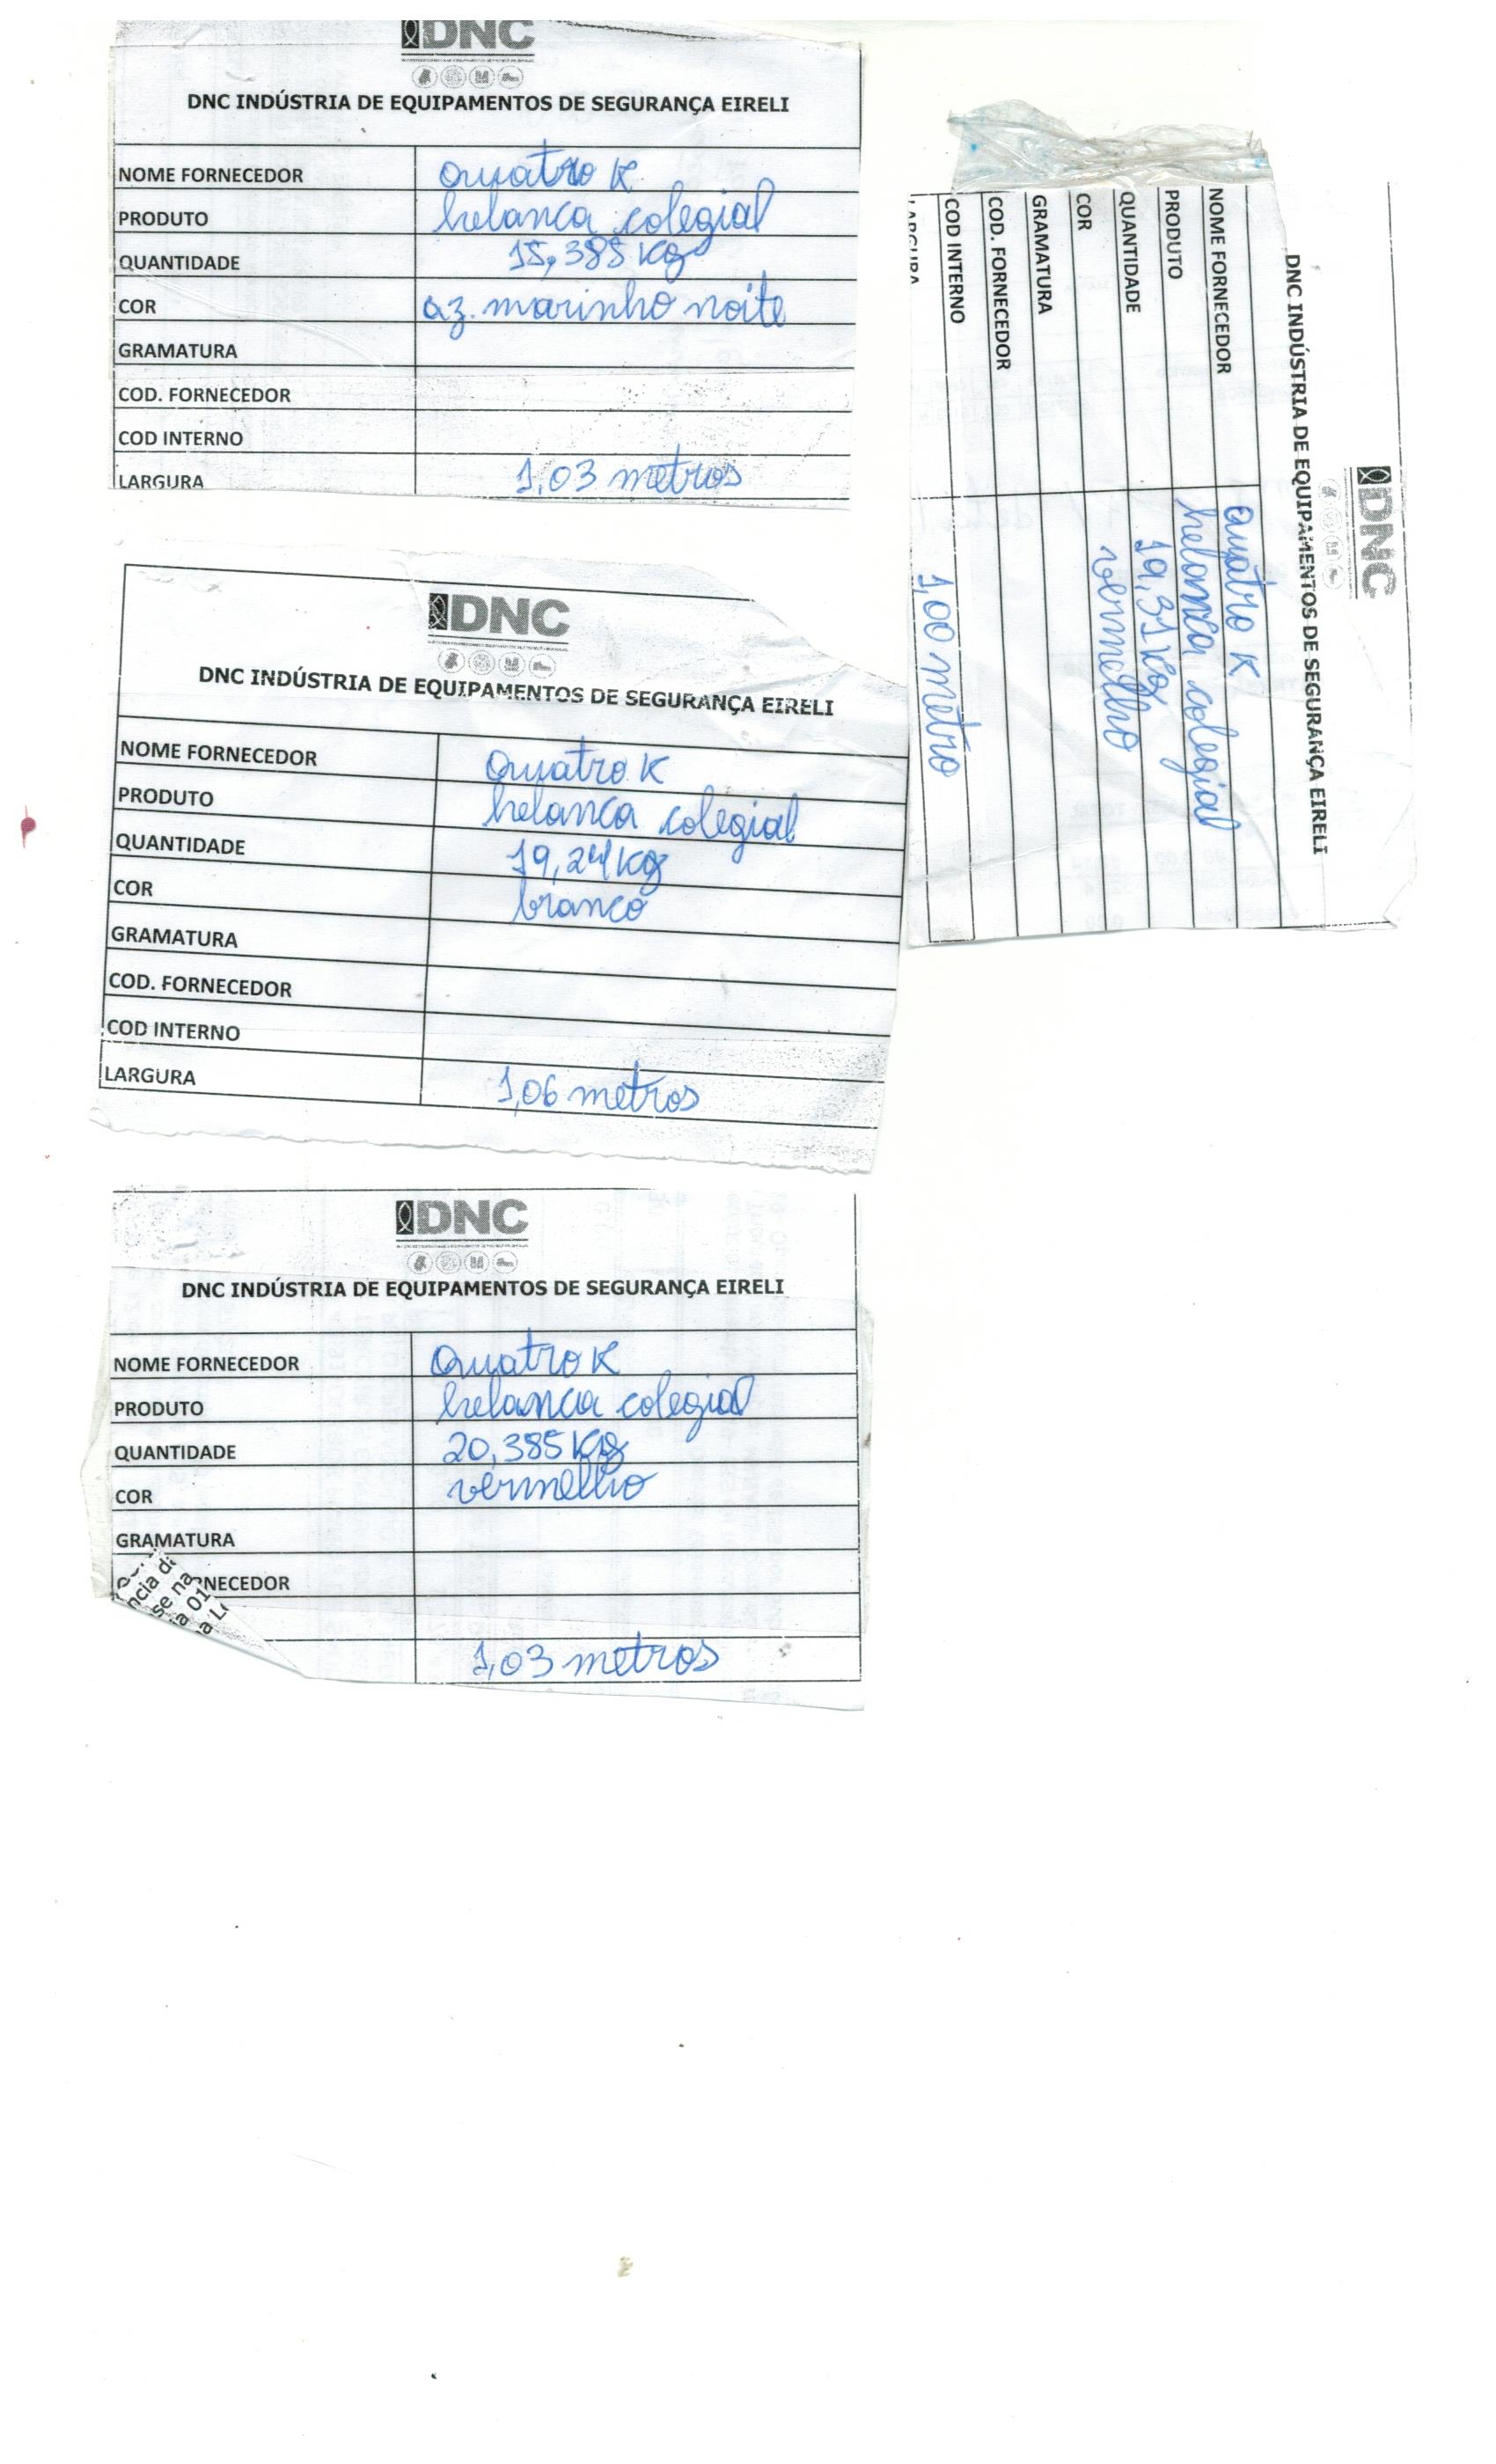 DNC
DNC INDÚSTRIA DE EQUIPAMENTOS DE SEGURANÇA EIRELI
NOME FORNECEDOR quatro K
PRODUTO helanca colegial
QUANTIDADE 15,385 kg
COR az. marinho noite
GRAMATURA
COD. FORNECEDOR
COD INTERNO
LARGURA 1,03 metros
DNC
DNC INDÚSTRIA DE EQUIPAMENTOS DE SEGURANÇA EIRELI
NOME FORNECEDOR quatro K
PRODUTO helanca colegial
QUANTIDADE 19,31 kg
COR vermelho
GRAMATURA
COD. FORNECEDOR
COD INTERNO
LARGURA 1,00 metro
DNC
DNC INDÚSTRIA DE EQUIPAMENTOS DE SEGURANÇA EIRELI
NOME FORNECEDOR Quatro K
PRODUTO helanca colegial
QUANTIDADE 19,24 kg
COR branco
GRAMATURA
COD. FORNECEDOR
COD INTERNO
LARGURA 1,06 metros
DNC
DNC INDÚSTRIA DE EQUIPAMENTOS DE SEGURANÇA EIRELI
NOME FORNECEDOR Quatro K
PRODUTO helanca colegial
QUANTIDADE 20,385 kg
COR vermelho
GRAMATURA
NECEDOR
ncia
se na
01
1,03 metros